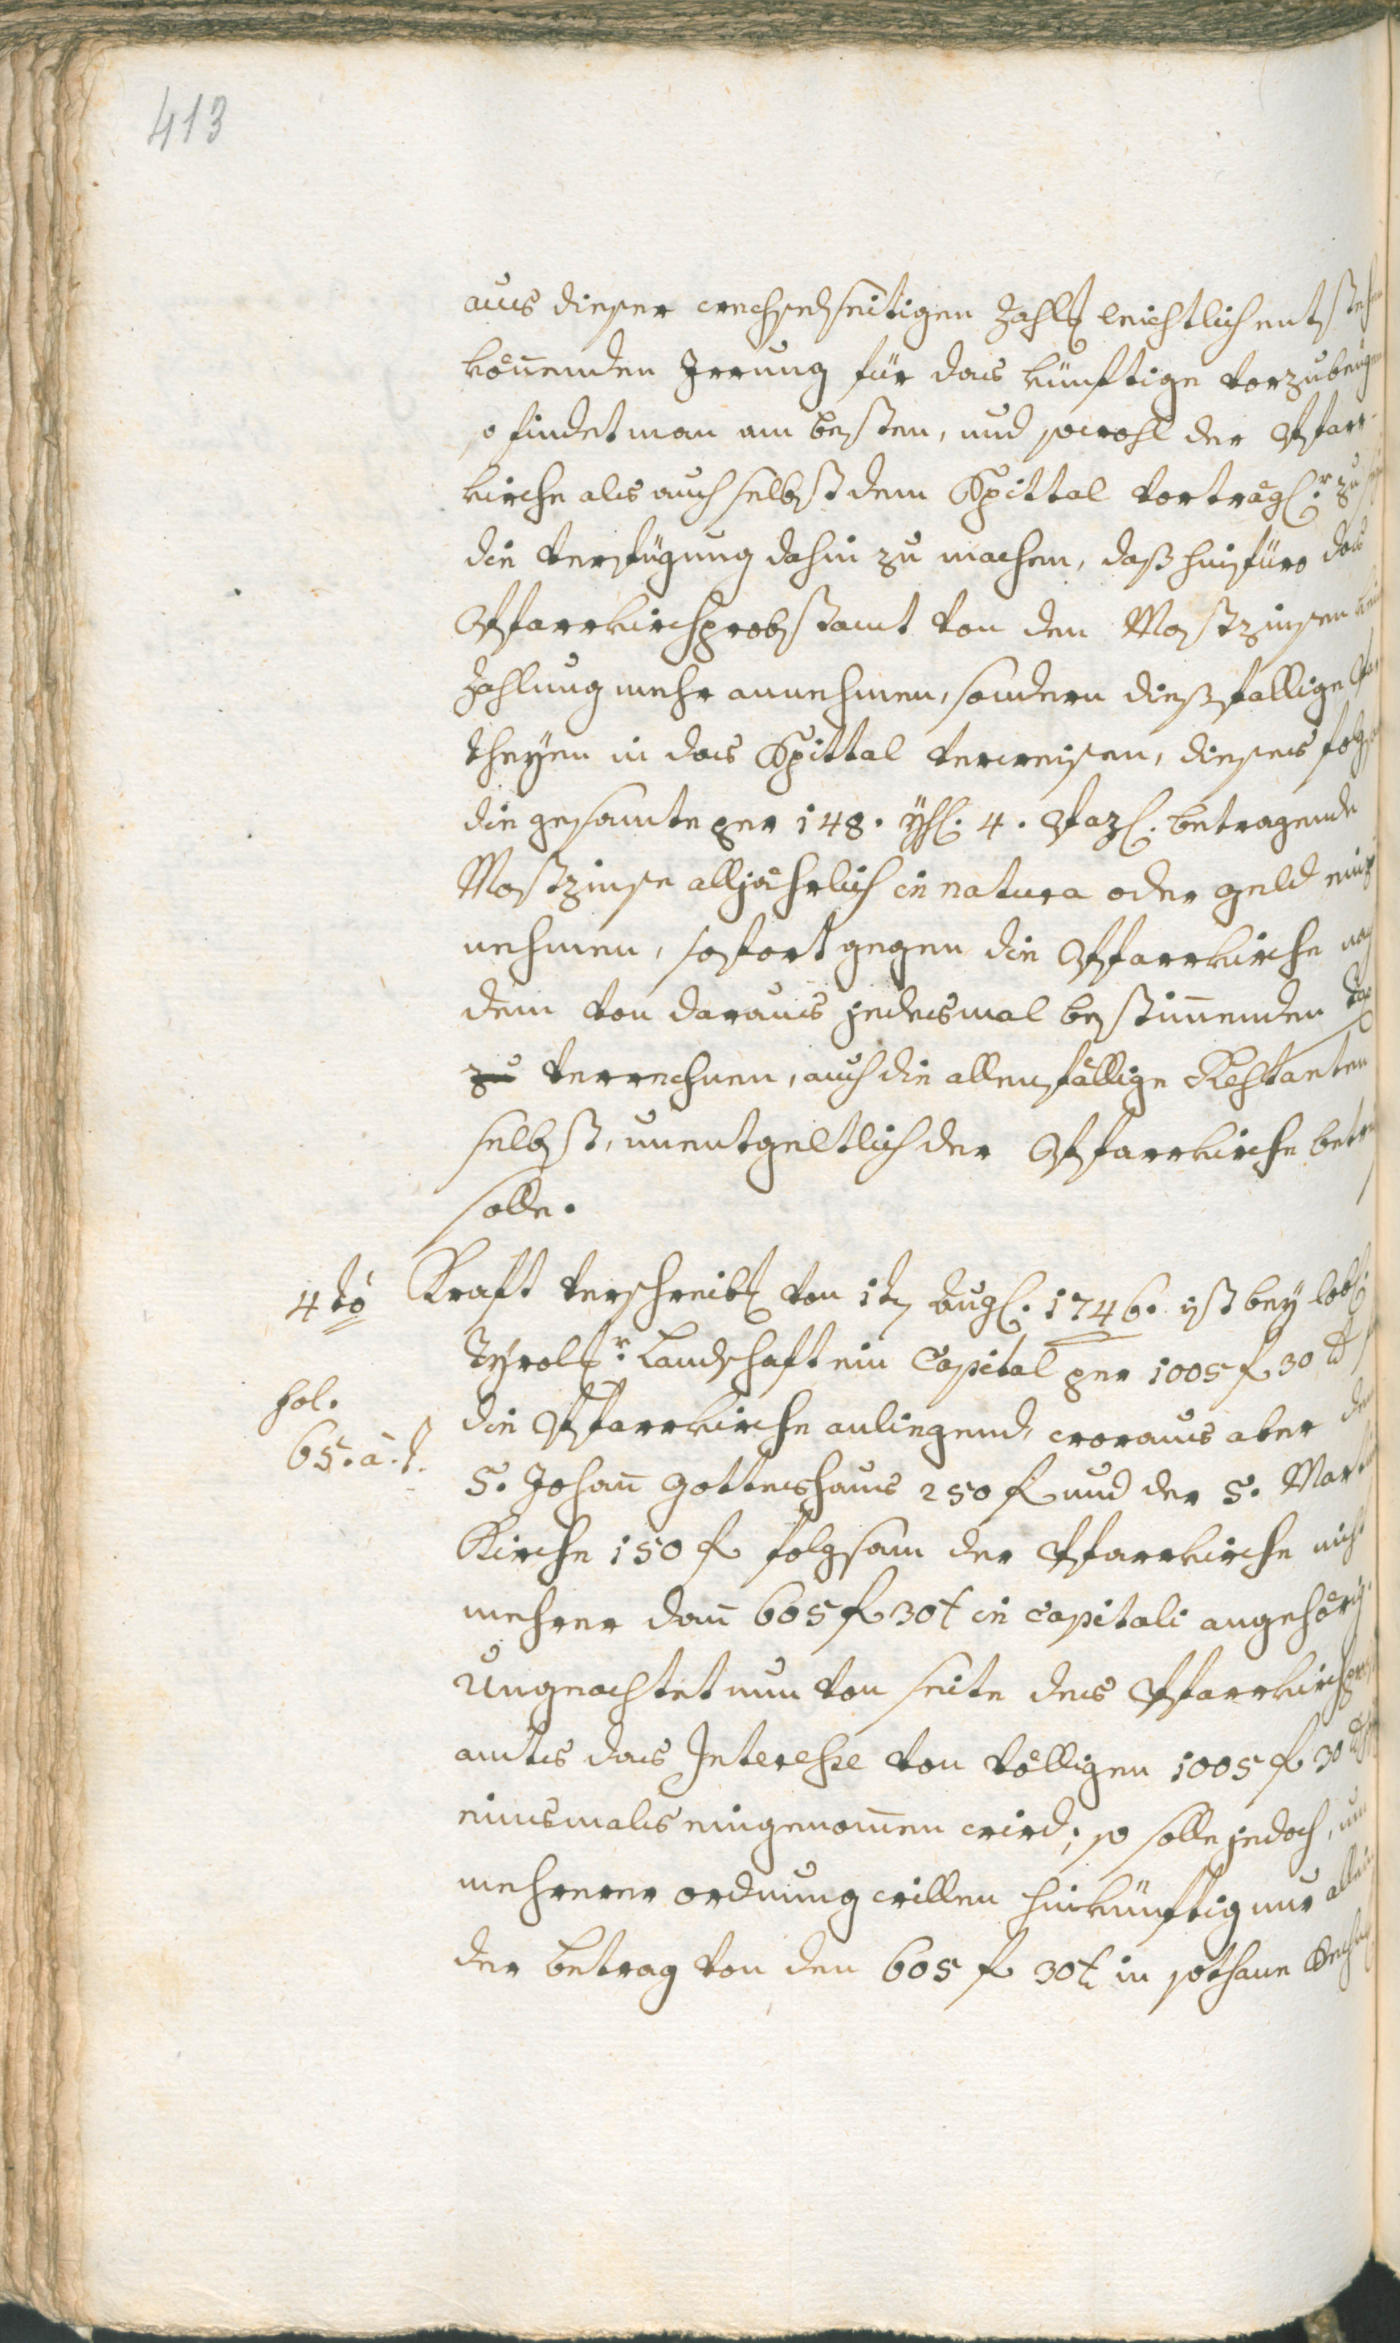 413
aus dieser wechselseitigen Zahlg leichtlich entsteh
köñenden Irrung für das künftige vorzubeugen
so findet man am besten, und sowohl der Pfarr-
kirche als auch selbst dem Spittal vorträgl:r zu
die Verfügung dahin zu machen, daß hinfüro das
Pfarrkirchprobstamt von den Mostzinsen kein
Zahlung mehr annehmen, sondern dießfallige Par
theyen in das Spittal verweisen, dieses folgs
die gesamte per 148. Yhr. 4. Pazl. betragende
Mostzinse alljährlich in natura oder geld einz
nehmen, sofort gegen die Pfarrkirche nach
dem von daraus jedesmal bestim̄enden Tax
zu verrechnen, auch die allenfällige Restanten
selbst, unentgeltlich der Pfarrkirche
solle.
4tò Kraft Verschreibg von 1tn Augl. 1746. ist bey lobl:
Tyrols:r Landschaft ein Capital per 1005 f 30 x
fol.
65. à. t.
die Pfarrkirche anliegend, woraus aber dem
S. Johañ Gotteshaus 250 f und der S. Martin
Kirche 150 f folgsam der Pfarrkirche nicht
mehrer dañ 605 f 30 x in Capitali angehörig.
Ungeachtet nun von seite des Pfarrkirchprobst
amts das Interesse von völligen 1005 f 30 x
einsmals eingenom̄en wird; so solle jedoch, um
mehrerer ordnung willen hinkünftig nur allein
der betrag von den 605 f 30 x in sothane Rechng